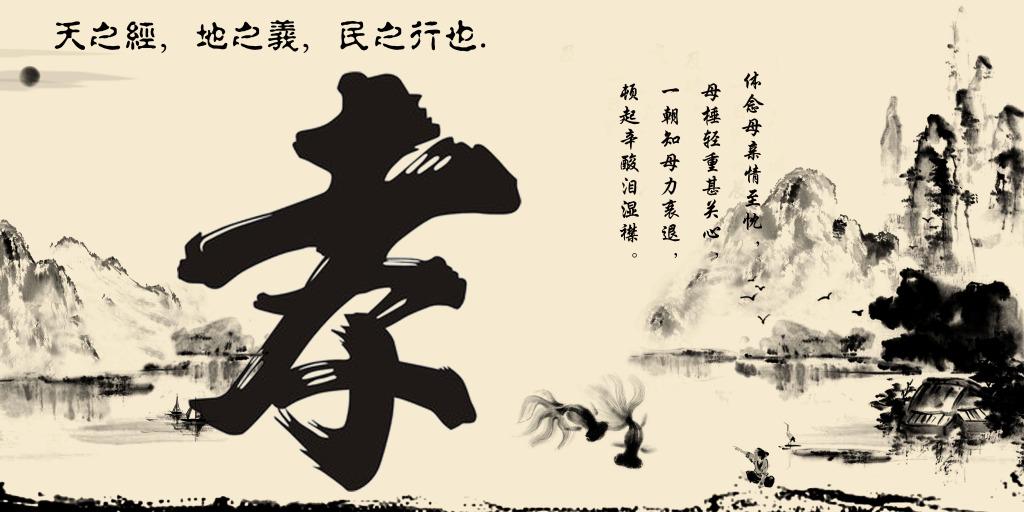 天之經，地之義，民之行也.
孝
体念母亲情至忱，
母棰轻重甚关心，
一朝知母力衰退，
顿起辛酸泪湿襟。